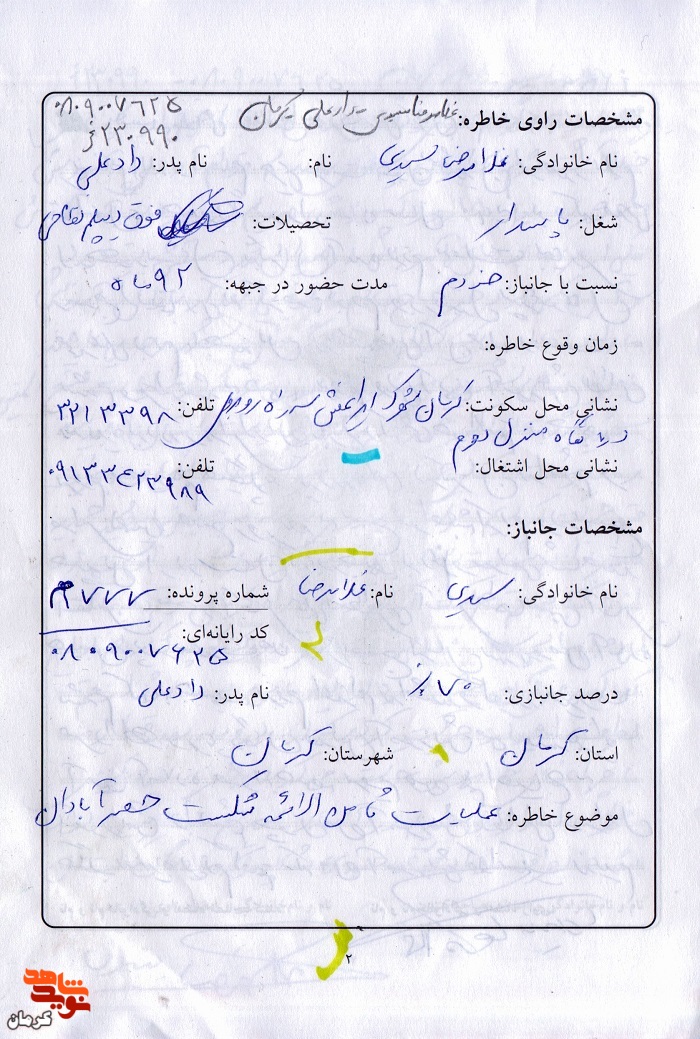 مشخصات راوی خاطره: غلامرضا سیدی دادعلی کرمان ۰۸۰۹۰۰۷۶۲۵
۲۳۰۹۹۰
نام خانوادگی: غلامرضا سیدی نام: نام پدر: دادعلی
شغل: پاسدار تحصیلات: فوق دیپلم نظامی
نسبت با جانباز: خودم مدت حضور در جبهه: ۹۲ ماه
زمان وقوع خاطره:
نشانی محل سکونت: کرمان شهرک ایرانمنش سه راه تلفن: ۳۲۱۳۳۹۸
منزل دوم
نشانی محل اشتغال: تلفن: ۰۹۱۳۳۴۲۳۹۸۹
مشخصات جانباز:
نام خانوادگی: سیدی نام: غلامرضا شماره پرونده: ۲۷۷۷
کد رایانه‌ای:
۰۸۰۹۰۰۷۶۲۵
درصد جانبازی: ۷۰٪ نام پدر: دادعلی
استان: کرمان شهرستان: کرمان
موضوع خاطره: عملیات ثامن الائمه شکست حصر آبادان
۲
نوید شاهد
کرمان